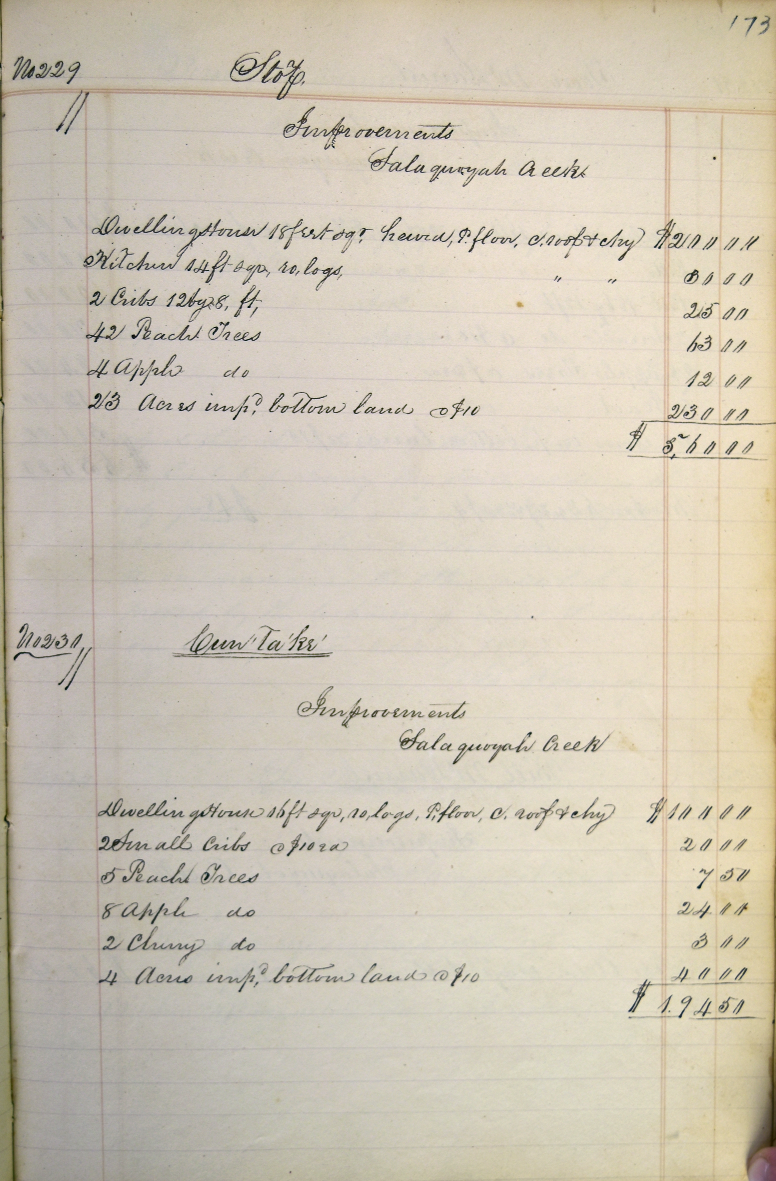 173
No 229 Stop.
Improvements
Salaquoyah Creek
Dwelling House 18 feet sqr. hewed, P. floor, c. roof & chy $200 00
Kitchen 14 ft sqr, ro, logs, " " 30 00
2 Cribs 12 by 8, ft, 25 00
42 Peach Trees 63 00
4 Apple do 12 00
23 Acres imp,d bottom land @ $10 230 00
$ 560 00
No 230 Cun'Ta'ke'
Improvements
Salaquoyah Creek
Dwelling House 16 ft sqr, ro, logs, P. floor, c. roof & chy $100 00
2 Small Cribs @ $10 ea 20 00
5 Peach Trees 7 50
8 Apple do 24 00
2 Cherry do 3 00
4 Acres imp,d bottom land @ $10 40 00
$ 194 50